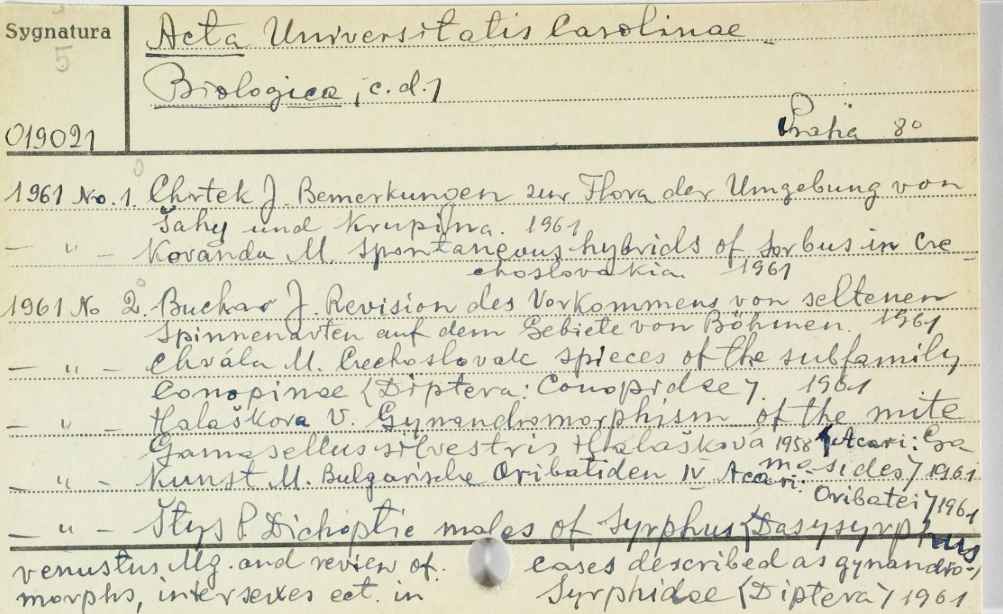 Sygnatura
5
019021
Acta Universitatis Carolinae
Biologica, c.d.)
Praha 8°
1961 No. 1. Chrtek J. Bemerkungen zur Flora der Umgebung von
Šahy und Krupina. 1961
— " — Kovanda M. Spontaneous hybrids of Sorbus in Cze-
choslovakia 1961
1961 No 2. Buchar J. Revision des Vorkommens von seltenen
Spinnenarten auf dem Gebiete von Böhmen. 1961
— " — Chvála M. Czechoslovak spieces of the subfamily
Conopinae (Diptera: Conopidae). 1961
— " — Halaškova V. Gynandromorphism of the mite
Gamasellus silvestris Halaškova 1958 (Acari: Ga-
masides) 1961
— " — Kunst M. Bulgarische Oribatiden IV Acari:
Oribatei) 1961
— " — Štys P Dichoptic males of Syrphus (Dasysyrphus
venustus Mg. and review of cases described as gynandro-
morphs, intersexes ect. in Syrphidae (Diptera) 1961